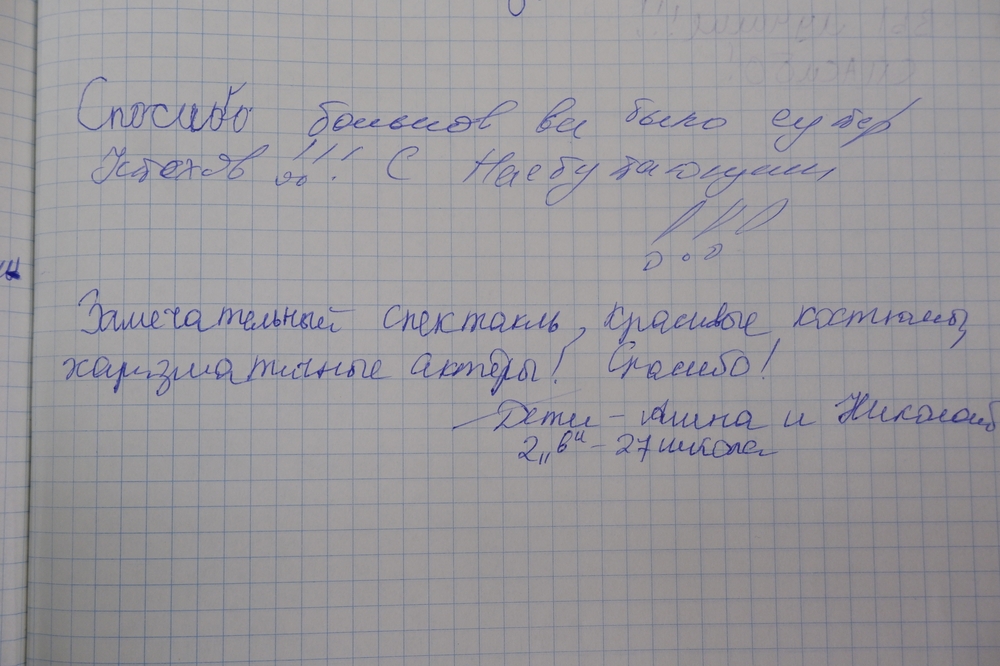 Спосибо большов вы было супер
Устехов !!! С Наступающим
!!!
Замечательный спектакль, красивые костюмы,
харизматичные актёры! Спасибо!
Дети – Алина и Николай
2 „в“ – 27 школа